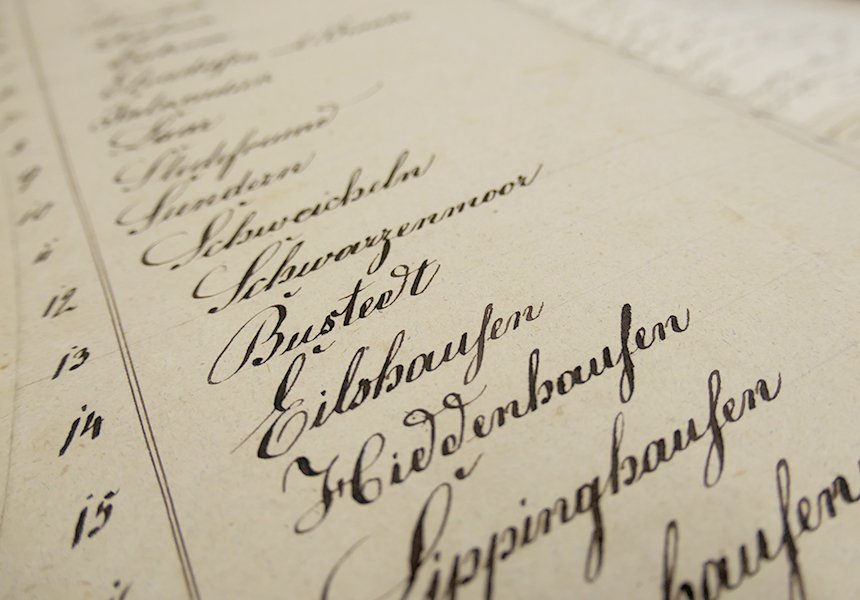 Laar
Stedefreund
11 Sundern
12 Schwaicheln
13 Schwarzenmoor
14 Bustedt
15 Eilshausen
Hiddenhausen
Lippinghausen
hausen